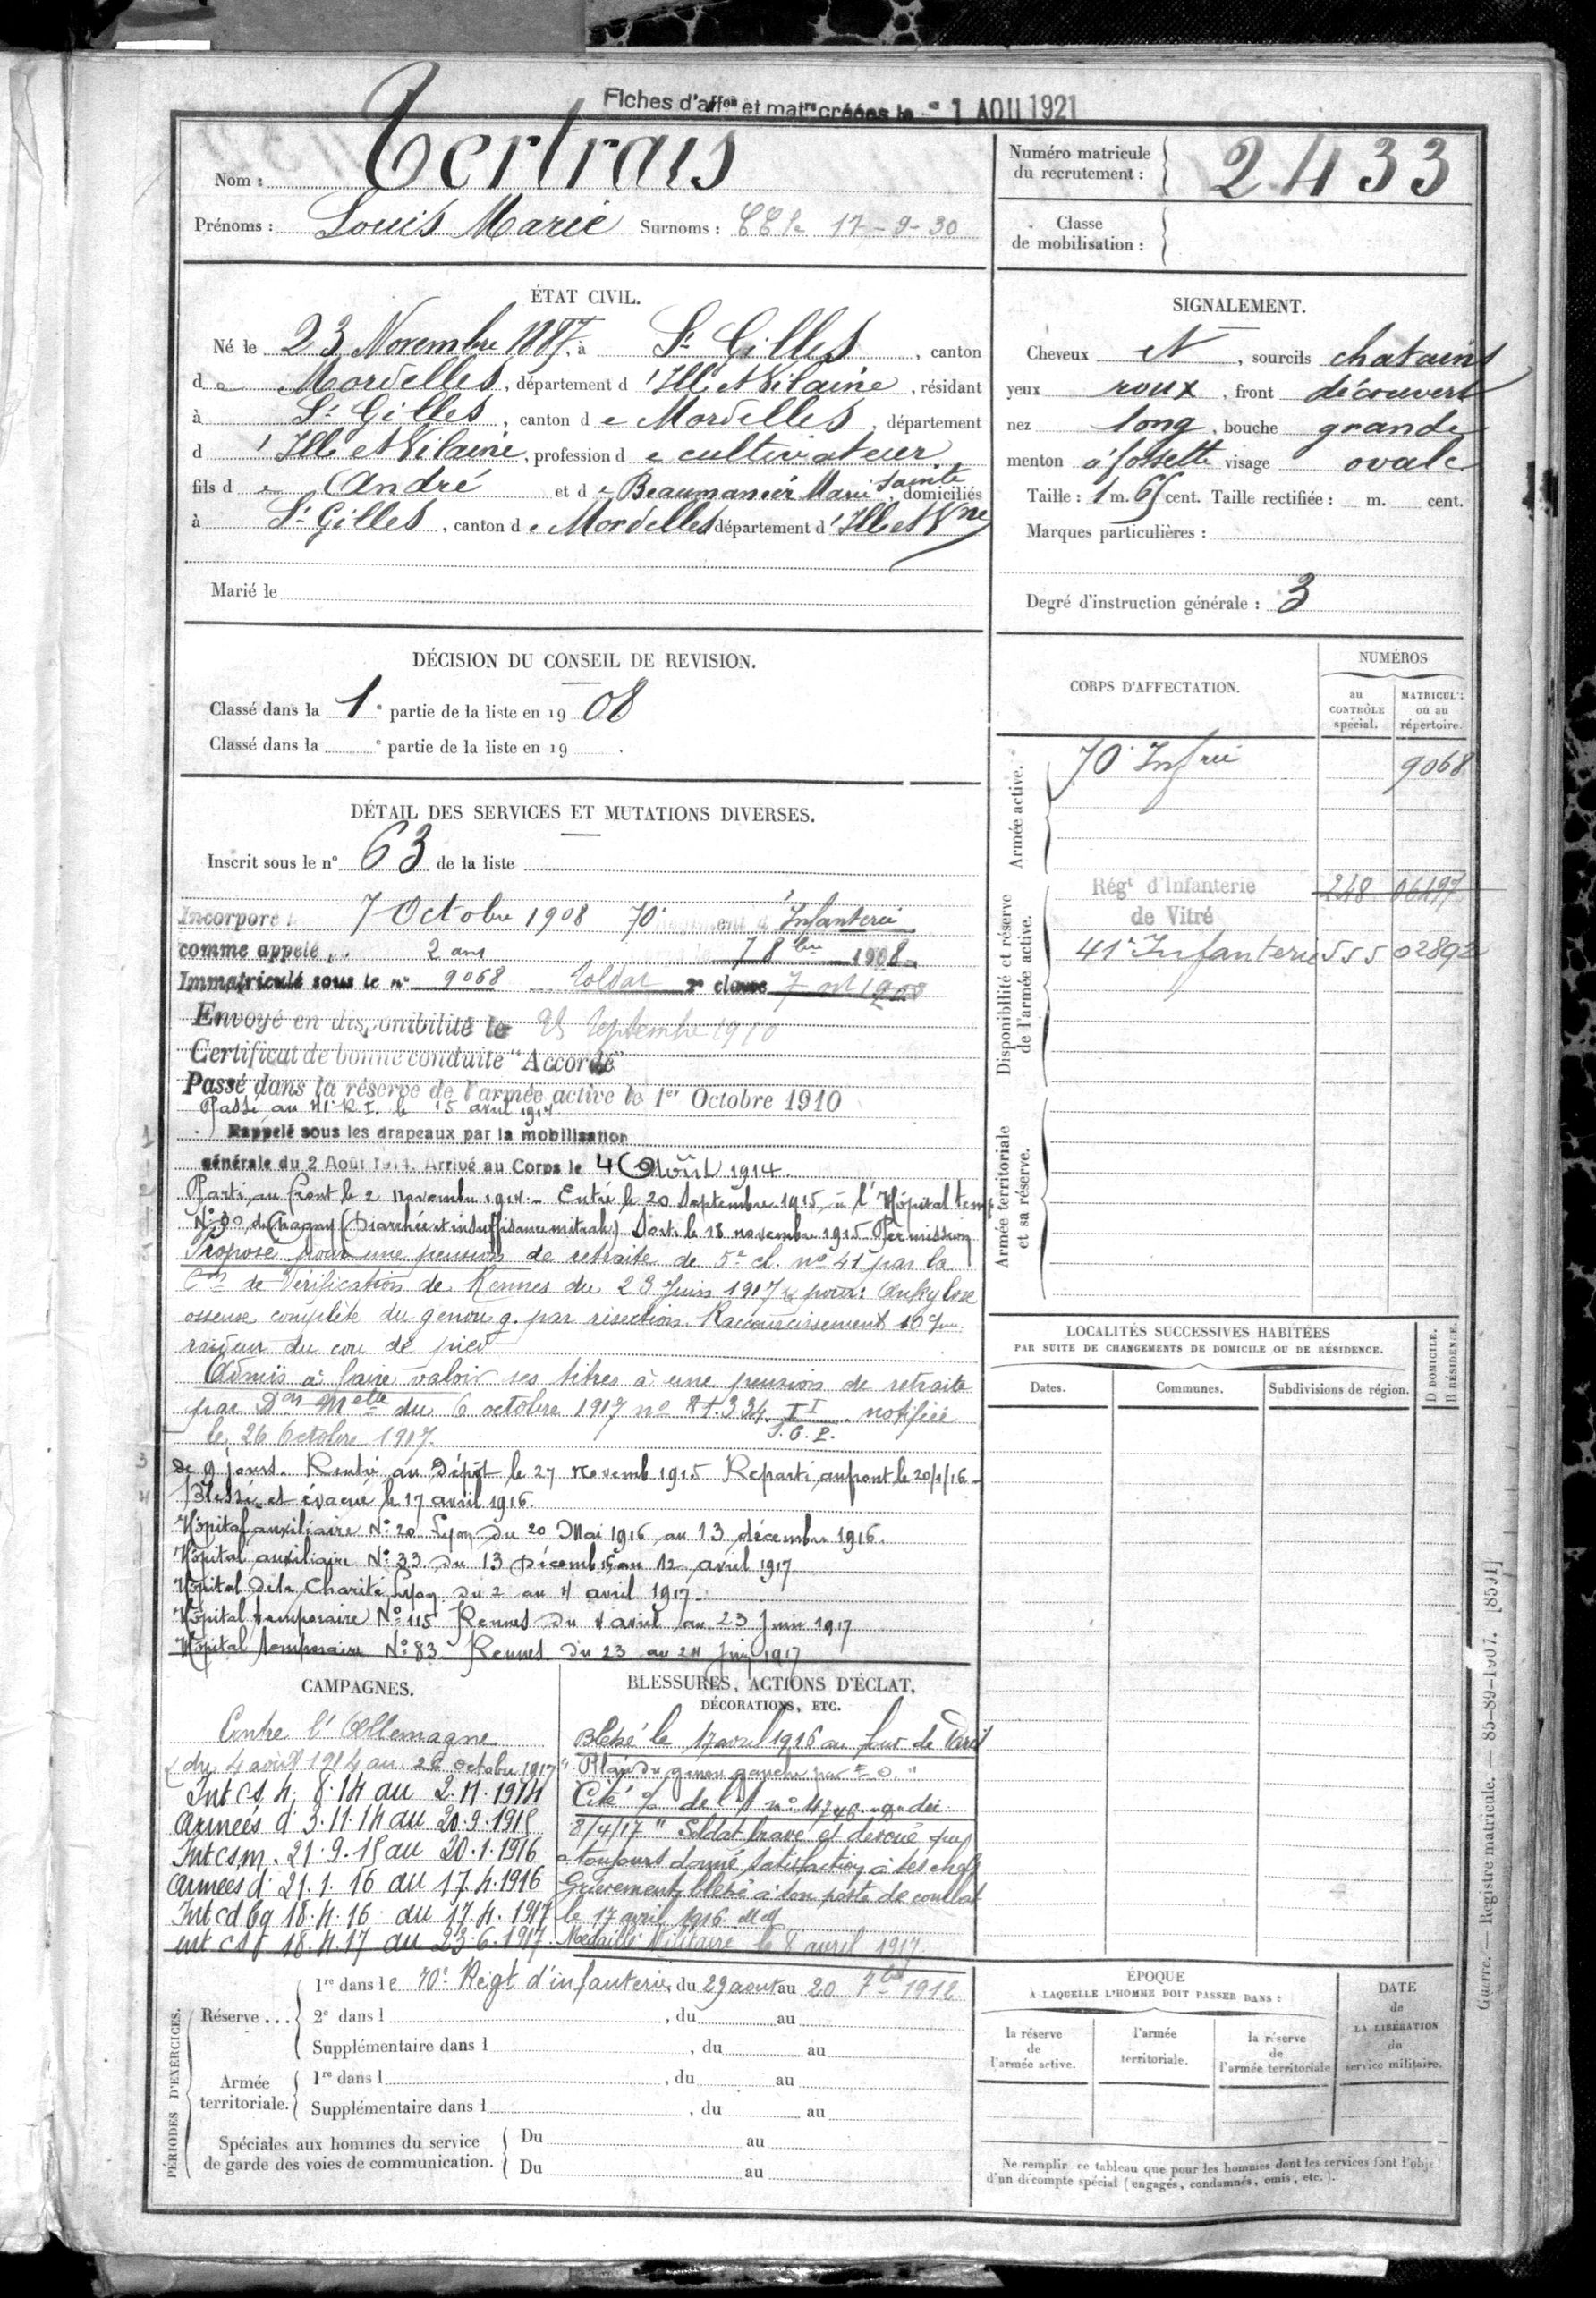 Fiches d'affon et matrs créées le 1 AOU 1921
Nom : Tertrais
Prénoms : Louis Marie Surnoms : 17-9-30
Numéro matricule du recrutement : 2433
Classe de mobilisation :
ÉTAT CIVIL.
Né le 23 Novembre 1887, à St Gilles, canton
de Mordelles, département d'Ille et Vilaine, résidant
à St Gilles, canton de Mordelles, département
d'Ille et Vilaine, profession de cultivateur
fils de André et de Beaumanoir Marie Sainte, domiciliés
à St Gilles, canton de Mordelles département d'Ille et Vne
Marié le
SIGNALEMENT.
Cheveux N, sourcils chatains
yeux roux, front découvert
nez long, bouche grande
menton à fossette visage ovale
Taille : 1 m. 65 cent. Taille rectifiée : m. cent.
Marques particulières :
Degré d'instruction générale : 3
DÉCISION DU CONSEIL DE REVISION.
Classé dans la 1e partie de la liste en 1908
Classé dans la e partie de la liste en 19 .
DÉTAIL DES SERVICES ET MUTATIONS DIVERSES.
Inscrit sous le n° 63 de la liste
Incorporé 7 Octobre 1908 70e Infanterie
comme appelé 2 ans 7 8bre 1908
Immatriculé sous le n° 9068 Soldat 2e classe 7 oct 1908
Envoyé en disponibilité le 25 Septembre 1910
Certificat de bonne conduite "Accordé"
Passé dans la réserve de l'armée active le 1er Octobre 1910
Passé au 41e R.I. le 15 avril 1914
Rappelé sous les drapeaux par la mobilisation
générale du 2 Août 1914. Arrivé au Corps le 4 Août 1914.
Parti au front le 2 novembre 1914 - Entré le 20 Septembre 1915 à l'Hôpital temp.
N° 30 de Chagny (Diarrhée et insuffisance mitrale) Sort. le 18 novembre 1915 Permission
Proposé pour une pension de retraite de 5e cl. n° 41 par la
Con de Vérification de Rennes du 23 Juin 1917 pour : Ankylose
osseuse complète du genou g. par résection. Raccourcissement 10 cm.
raideur du cou de pied
Admis à faire valoir ses titres à une pension de retraite
par Don Melle du 6 octobre 1917 n° 334 notifiée
le 26 Octobre 1917.
de 9 jours. Rentré au Dépôt le 27 novemb 1915 Reparti au front le 20/1/16 -
Blessé et évacué le 17 avril 1916.
Hôpital auxiliaire N° 20 Lyon Du 20 Mai 1916 au 13 décembre 1916.
Hôpital auxiliaire N° 33 Du 13 Décemb 16 au 12 avril 1917
Hôpital de la Charité Lyon Du 2 au 4 avril 1917.
Hôpital temporaire N° 115 Rennes Du 4 avril au 23 Juin 1917
Hôpital temporaire N° 83 Rennes Du 23 au 24 Juin 1917
CORPS D'AFFECTATION.
NUMÉROS
au CONTRÔLE spécial.
MATRICULE ou au répertoire.
Armée active.
70e Infrie 9068
Disponibilité et réserve de l'armée active.
Régt d'Infanterie de Vitré 248 06497
41e Infanterie 555 02892
Armée territoriale et sa réserve.
LOCALITÉS SUCCESSIVES HABITÉES
PAR SUITE DE CHANGEMENTS DE DOMICILE OU DE RÉSIDENCE.
Dates. Communes. Subdivisions de région. D DOMICILE. R RÉSIDENCE.
CAMPAGNES.
Contre l'Allemagne
du 4 août 1914 au 26 Octobre 1917
Int CS 4. 8.14 au 2.11.1914
Armées d 3.11.14 au 20.9.1915
Int csm. 21.9.15 au 20.1.1916
Armées d 21.1.16 au 17.4.1916
Int cd bg 18.4.16 au 17.4.1917
Int CS 18.4.17 au 23.6.1917.
BLESSURES, ACTIONS D'ÉCLAT, DÉCORATIONS, ETC.
Blessé le 17 avril 1916 au four de Paris
"Plaie du genou gauche par E.O."
Cité de l'A n° 4746 du
8/4/17 "Soldat brave et dévoué qui
a toujours donné satisfaction à ses chefs
Grièvement blessé à son poste de combat
le 17 avril 1916.
Médaille Militaire le 8 avril 1917.
PÉRIODES D'EXERCICES.
Réserve ...
1re dans le 70e Régt d'infanterie, du 29 aout au 20 7bre 1912
2e dans l , du au
Supplémentaire dans l , du au
Armée territoriale.
1re dans l , du au
Supplémentaire dans l , du au
Spéciales aux hommes du service de garde des voies de communication.
Du au
Du au
ÉPOQUE
À LAQUELLE L'HOMME DOIT PASSER DANS :
la réserve de l'armée active.
l'armée territoriale.
la réserve de l'armée territoriale
DATE de LA LIBÉRATION du service militaire.
Ne remplir ce tableau que pour les hommes dont les services font l'objet
d'un décompte spécial (engagés, condamnés, omis, etc.).
Guerre. — Registre matricule. — 85-89-1907. [8501]